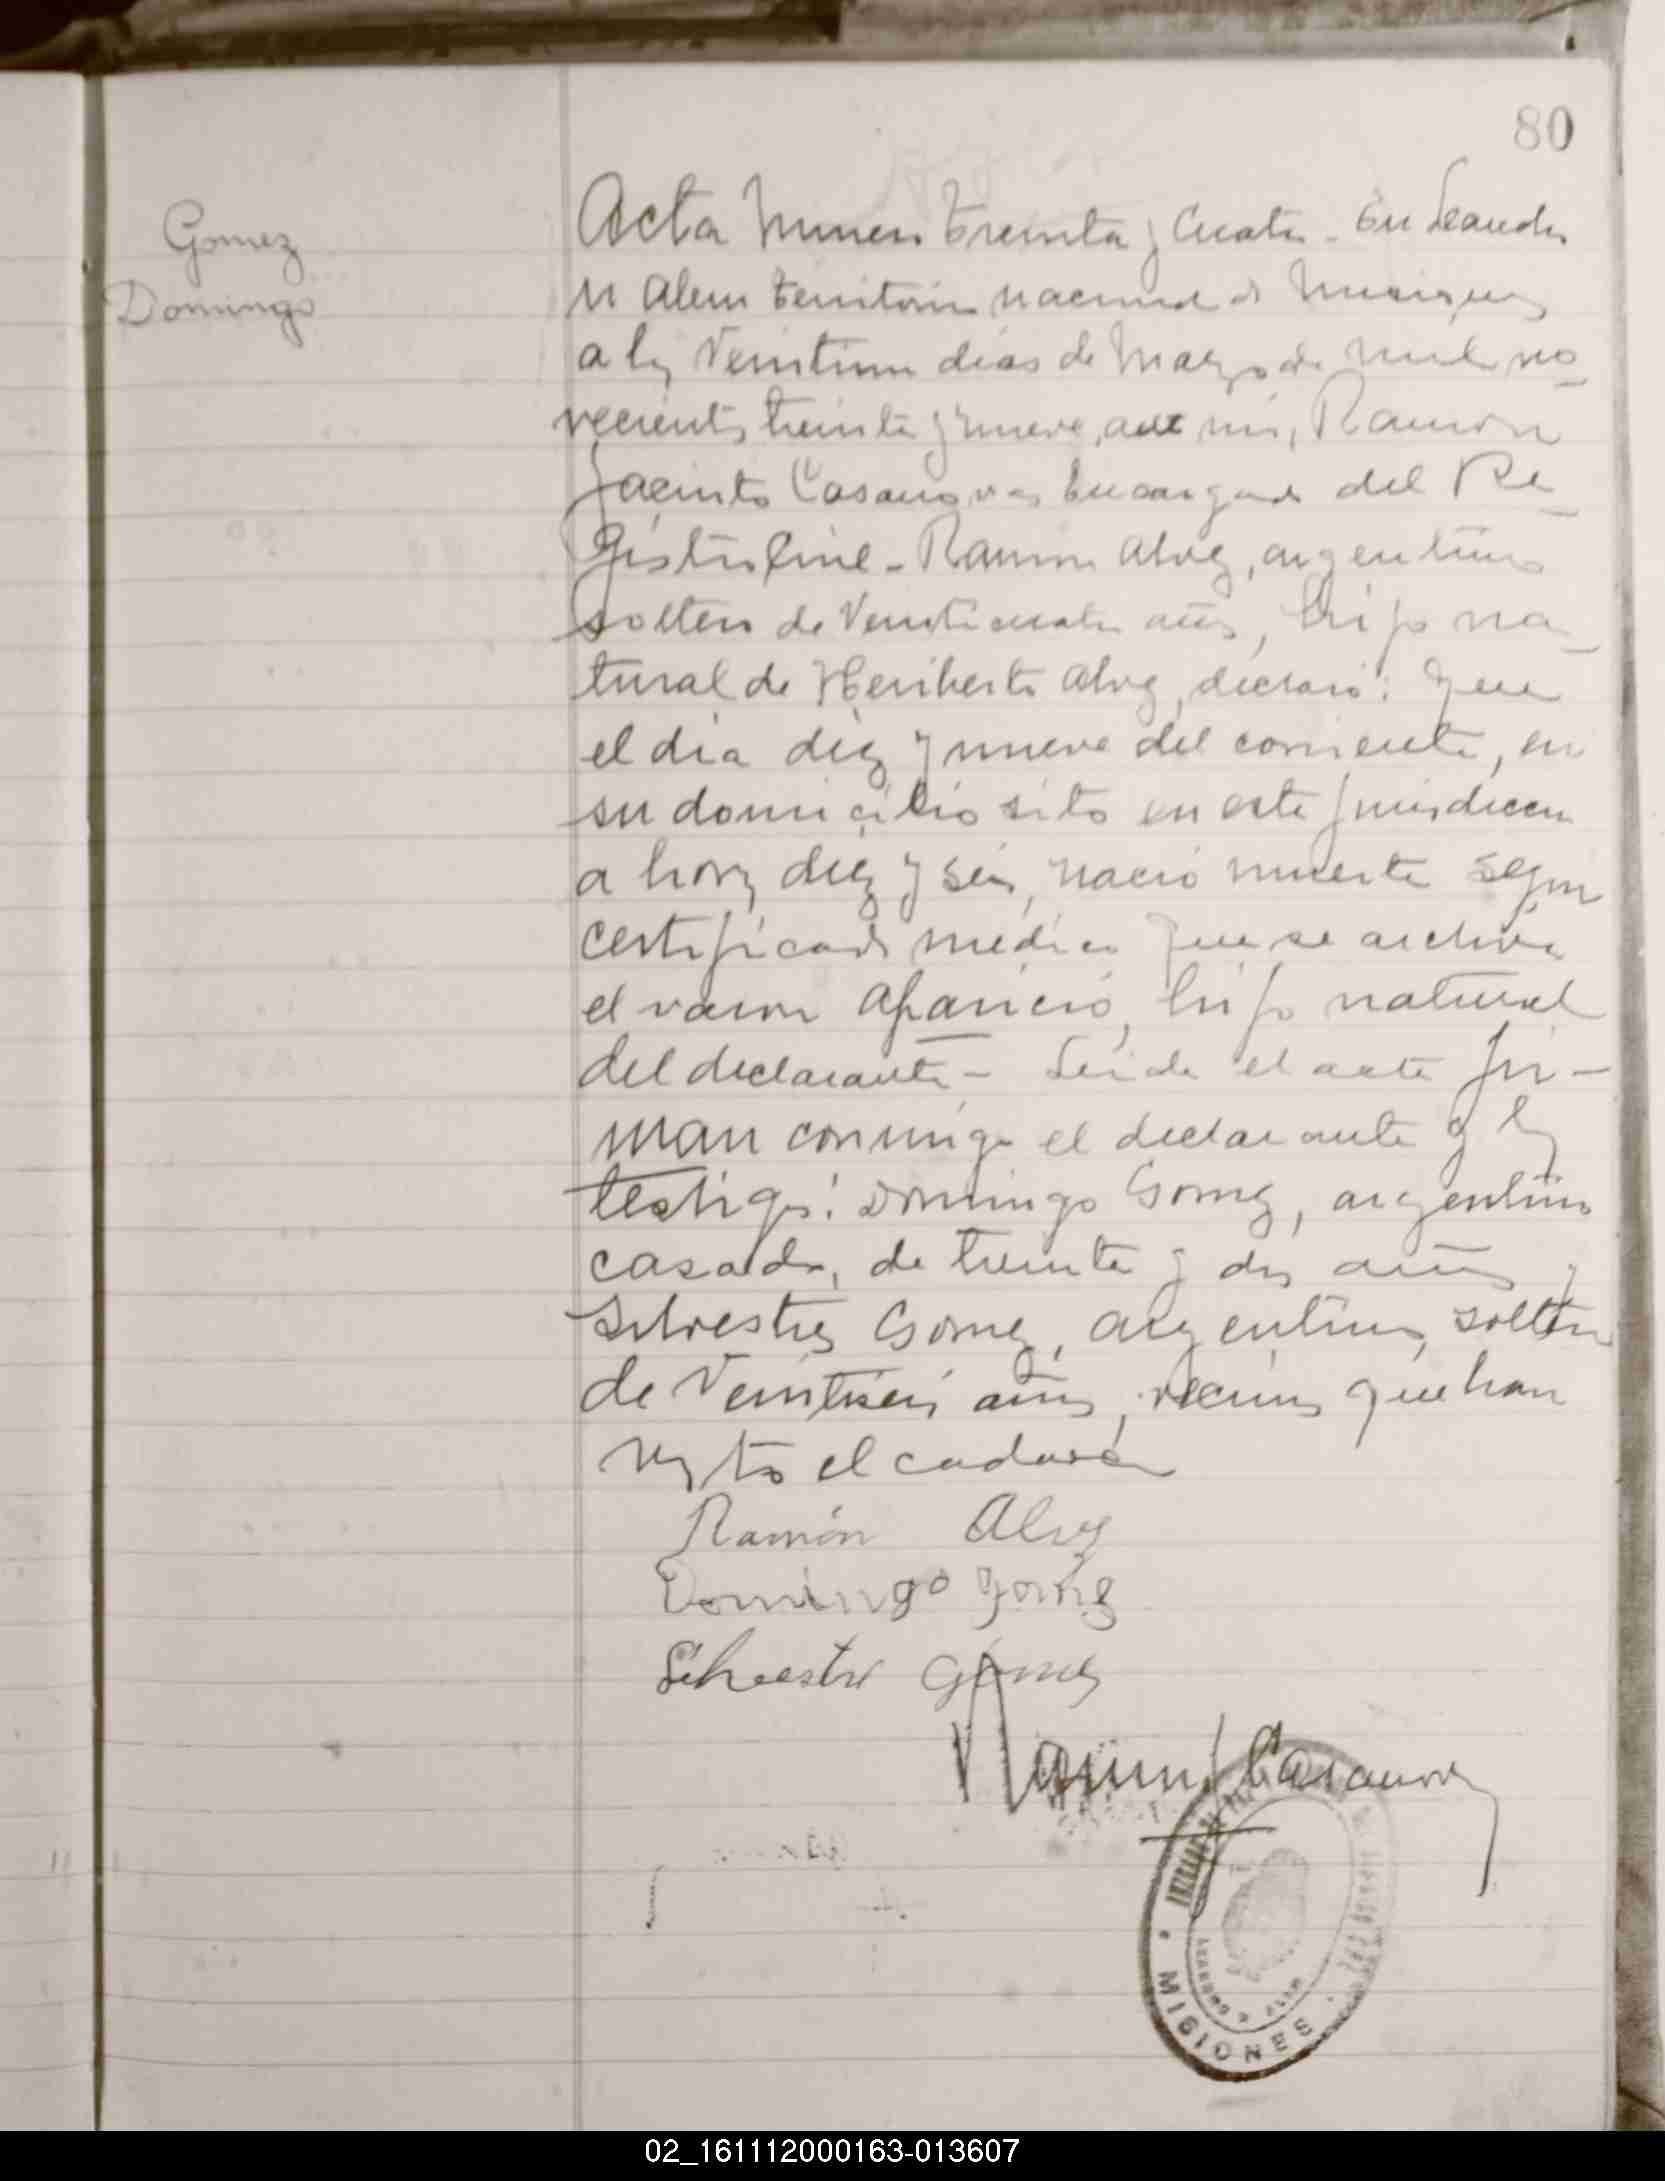 80
Gomez
Domingo
Acta Numero treinta y Cuatro - En Leandro
N Alem territorio nacional de Misiones
a los veintiun dias de Marzo de mil no_
vecientos treinta y nueve, ante mi, Ramon
Jacinto Casanovas Encargado del Re_
gistro Civil - Ramon Alvez, argentino
soltero de Veinticuatro años, hijo na_
tural de Heriberto Alvez, declaró: Que
el dia diez y nueve del corriente, en
su domicilio sito en esta jurisdiccion
a horas diez y seis, nació muerto segun
certificado medico que se archiva
el varon Aparicio, hijo natural
del declarante - Leida el acta fir-
man conmigo el declarante y los
testigos: Domingo Gomez, argentino
casado, de treinta y dos años y
Silvestre Gomez, argentino, soltero
de Veintiseis años, vecinos que han
visto el cadaver
Ramón Alvez
Domingo Gomez
Silvestre Gomez
Ramon J Casanovas
MISIONES
02_161112000163-013607